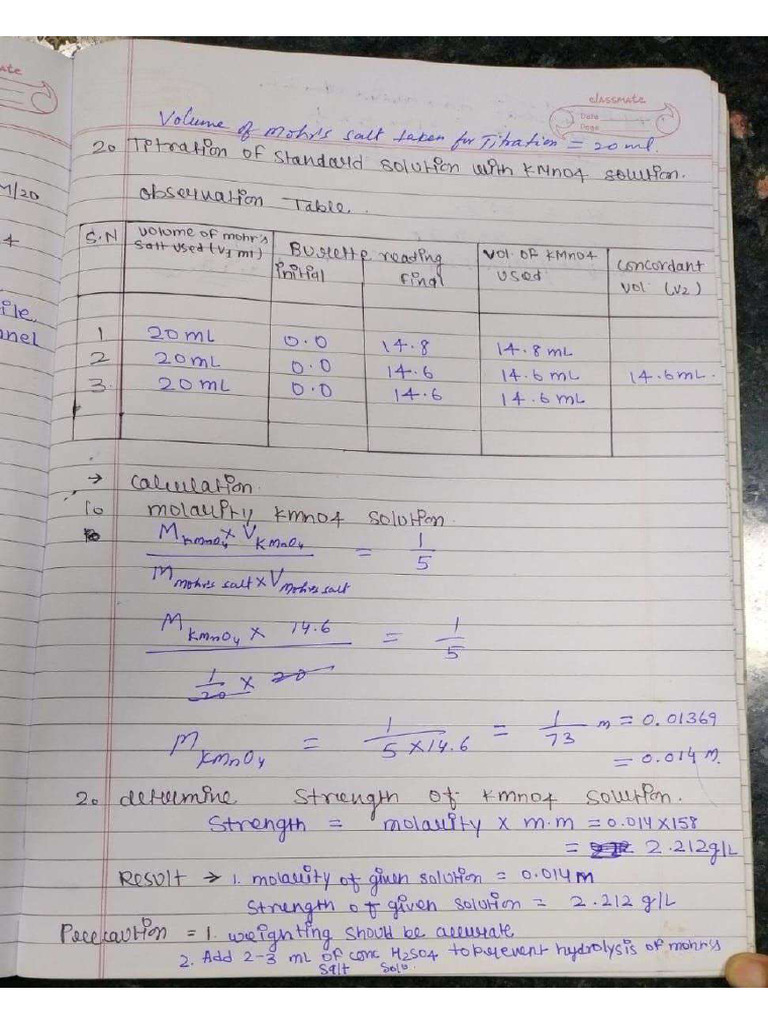 classmate
Date
Page
Volume of Mohr's salt taken for Titration = 20 ml.
20 Titration of standard solution with KMnO4 solution.
Observation Table.
S.N | Volume of mohr's salt used (V1 ml) | Burette reading initial | final | Vol. of KMnO4 used | Concordant vol. (V2)
1 20 mL 0.0 14.8 14.8 mL
2 20 mL 0.0 14.6 14.6 mL 14.6 mL.
3. 20 mL 0.0 14.6 14.6 mL
→ Calculation.
10 molarity KMnO4 solution.
M KMnO4 × V KMnO4 / M Mohr's salt × V Mohr's salt = 1/5
M KMnO4 × 14.6 / 1/20 × 20 = 1/5
M KMnO4 = 1 / 5 × 14.6 = 1/73 m = 0.01369
= 0.014 M.
20 determine Strength of KMnO4 solution.
Strength = molarity × m.m = 0.014 × 158
= 2.212 g/L
Result → 1. molarity of given solution = 0.014 M
Strength of given solution = 2.212 g/L
Precaution = 1. weighting should be accurate
2. Add 2-3 mL of conc H2SO4 to prevent hydrolysis of mohr's
Salt Solu.
ate
M/20
4
ile
nnel